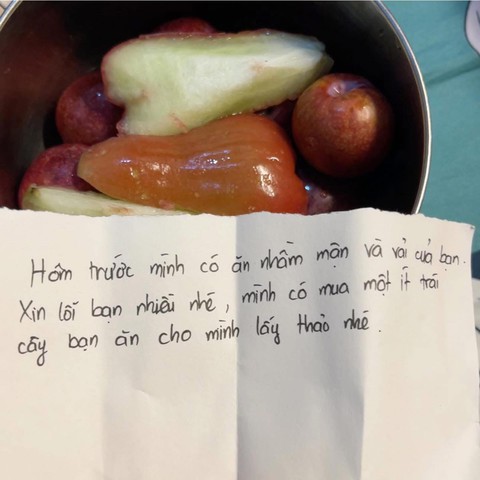 Hôm trước mình có ăn nhầm mận và vải của bạn.
Xin lỗi bạn nhiều nhé, mình có mua một ít trái
cây bạn ăn cho mình lấy thảo nhé.